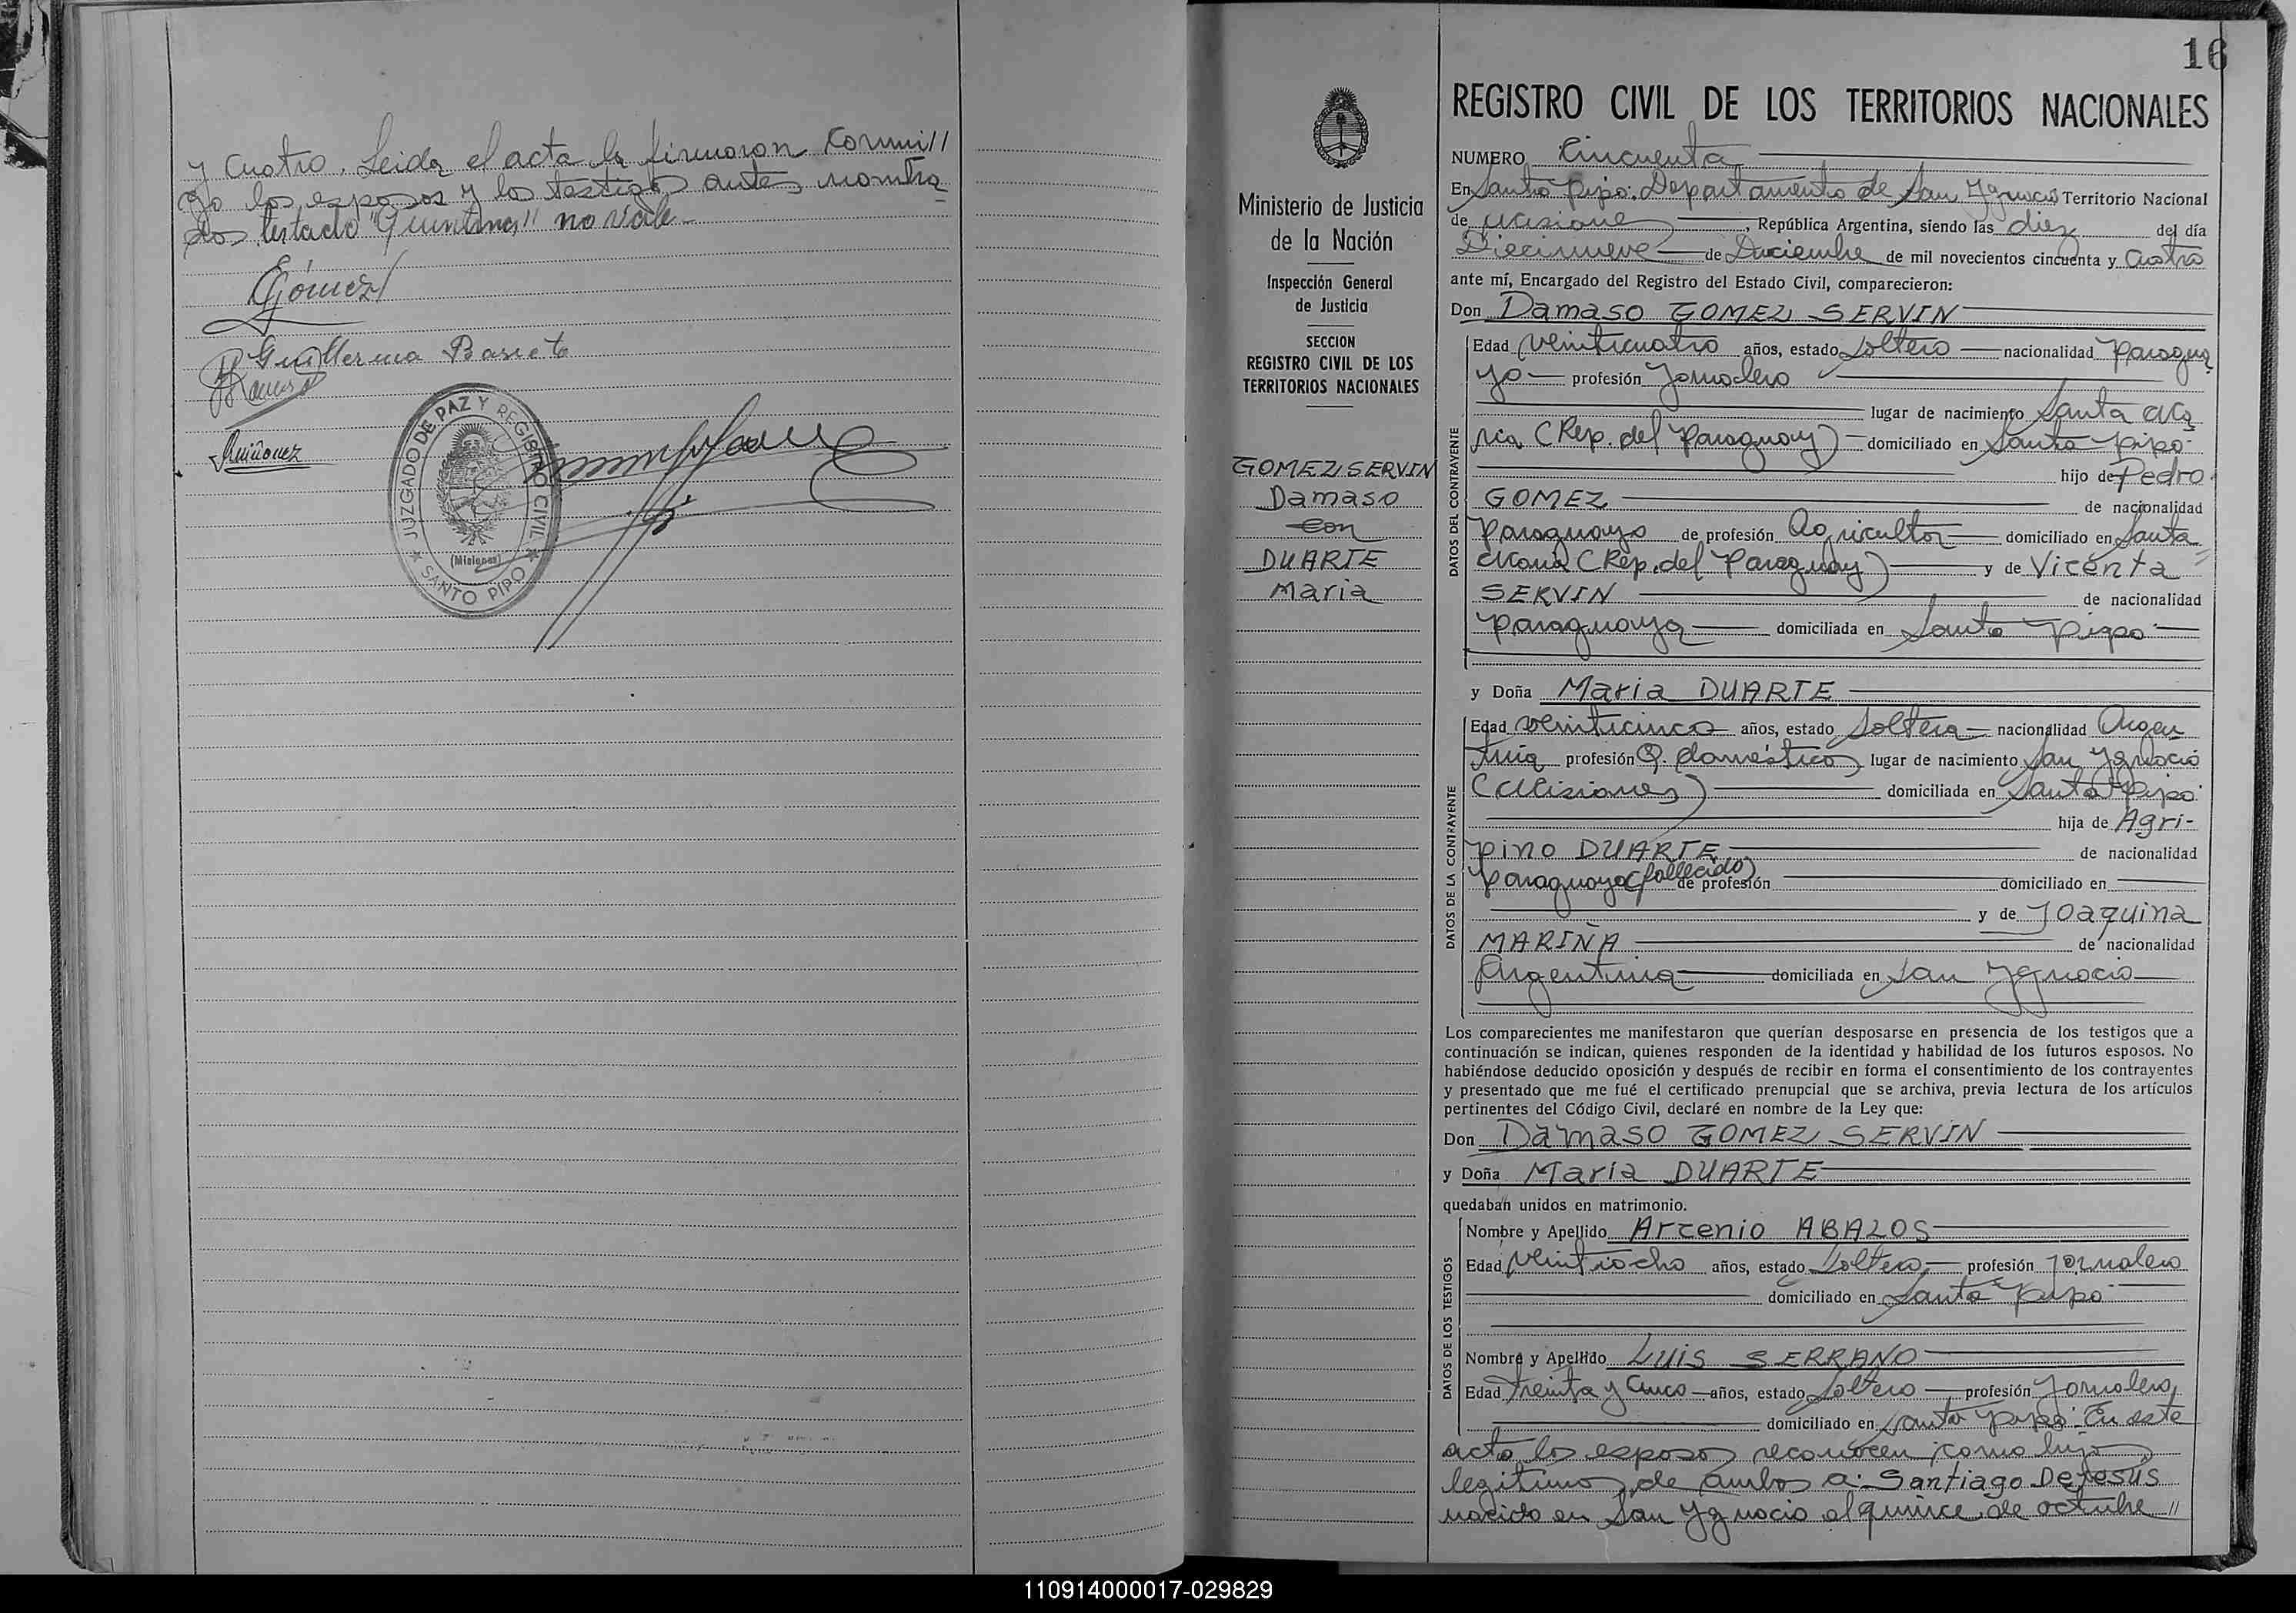 y Cuatro. Leida el acta la firmaron conmi//
go los esposos y los testigos antes nombra
dos testado "Quintana" no vale.-
Gómez
Guillerma Barreto
Ramos
Quiñonez
JUZGADO DE PAZ Y REGISTRO CIVIL
(Misiones)
★ SANTO PIPO ★
16
Ministerio de Justicia
de la Nación
Inspección General
de Justicia
SECCION
REGISTRO CIVIL DE LOS
TERRITORIOS NACIONALES
GOMEZ SERVIN
Damaso
con
DUARTE
Maria
REGISTRO CIVIL DE LOS TERRITORIOS NACIONALES
NUMERO Cincuenta
En Santo Pipó: Departamento de San Ygnacio Territorio Nacional
de Misiones, República Argentina, siendo las diez del día
Diecinueve de Diciembre de mil novecientos cincuenta y Cuatro
ante mí, Encargado del Registro del Estado Civil, comparecieron:
Don Damaso GOMEZ SERVIN
DATOS DEL CONTRAYENTE
Edad Veinticuatro años, estado Soltero nacionalidad Paragua
yo profesión Jornalero
lugar de nacimiento Santa Ma
ria (Rep. del Paraguay) domiciliado en Santo Pipó
hijo de Pedro
GOMEZ de nacionalidad
Paraguayo de profesión Agricultor domiciliado en Santa
Maria (Rep. del Paraguay) y de Vicenta
SERVIN de nacionalidad
Paraguaya domiciliada en Santo Pipó
y Doña Maria DUARTE
DATOS DE LA CONTRAYENTE
Edad Veinticinco años, estado Soltera nacionalidad Argen
tina profesión Q. domésticos lugar de nacimiento San Ygnacio
(Misiones) domiciliada en Santo Pipó
hija de Agri-
pino DUARTE de nacionalidad
Paraguayo (fallecido) de profesión domiciliado en
y de Joaquina
MARIÑA de nacionalidad
Argentina domiciliada en San Ygnacio
Los comparecientes me manifestaron que querían desposarse en presencia de los testigos que a
continuación se indican, quienes responden de la identidad y habilidad de los futuros esposos. No
habiéndose deducido oposición y después de recibir en forma el consentimiento de los contrayentes
y presentado que me fué el certificado prenupcial que se archiva, previa lectura de los artículos
pertinentes del Código Civil, declaré en nombre de la Ley que:
Don Damaso GOMEZ SERVIN
y Doña Maria DUARTE
quedaban unidos en matrimonio.
DATOS DE LOS TESTIGOS
Nombre y Apellido Arcenio ABALOS
Edad Veintiocho años, estado Soltero profesión Jornalero
domiciliado en Santo Pipó
Nombre y Apellido LUIS SERRANO
Edad treinta y Cinco años, estado Soltero profesión Jornalero
domiciliado en Santo Pipó. En este
acto los esposos reconocen como hijo
legitimo de ambos a: Santiago De Jesús
nacido en San Ygnacio el quince de octubre //
110914000017-029829